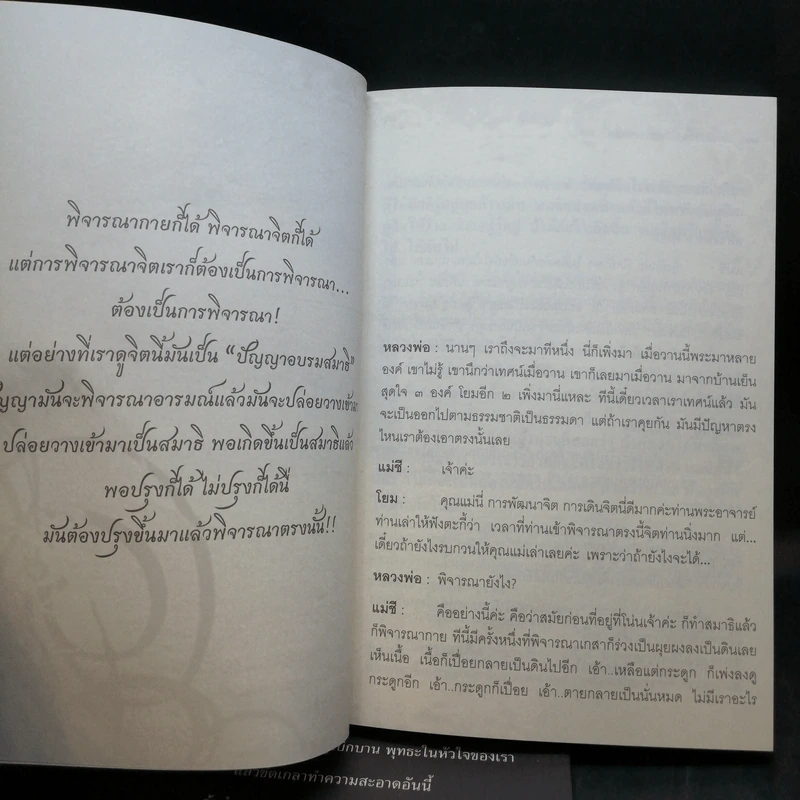 พิจารณากายก็ได้ พิจารณาจิตก็ได้
แต่การพิจารณาจิตเราก็ต้องเป็นการพิจารณา...
ต้องเป็นการพิจารณา!
แต่อย่างที่เราดูจิตนี้มันเป็น “ปัญญาอบรมสมาธิ”
มันจะพิจารณาอารมณ์แล้วมันจะปล่อยวางเข้ามา
ปล่อยวางเข้ามาเป็นสมาธิ พอเกิดขึ้นเป็นสมาธิแล้ว
พอปรุงก็ได้ ไม่ปรุงก็ได้นี่
มันต้องปรุงขึ้นมาแล้วพิจารณาตรงนั้น!!
หลวงพ่อ : นานๆ เราถึงจะมาทีหนึ่ง นี่ก็เพิ่งมา เมื่อวานนี้พระมาหลาย
องค์ เขาไม่รู้ เขานึกว่าเทศน์เมื่อวาน เขาก็เลยมาเมื่อวาน มาจากบ้านเย็น
สุดใจ ๓ องค์ โยมอีก ๒ เพิ่งมานี่แหละ ทีนี้เดี๋ยวเวลาเราเทศน์แล้ว มัน
จะเป็นออกไปตามธรรมชาติเป็นธรรมดา แต่ถ้าเราคุยกัน มันมีปัญหาตรง
ไหนเราต้องเอาตรงนั้นเลย
แม่ชี : เจ้าค่ะ
โยม : คุณแม่นี่ การพัฒนาจิต การเดินจิตนี่ดีมากค่ะท่านพระอาจารย์
ท่านเล่าให้ฟังตะกี้ว่า เวลาที่ท่านเข้าพิจารณาตรงนี้จิตท่านนิ่งมาก แต่...
เดี๋ยวถ้ายังไงรบกวนให้คุณแม่เล่าเลยค่ะ เพราะว่าถ้ายังไงจะได้...
หลวงพ่อ : พิจารณายังไง?
แม่ชี : คืออย่างนี้ค่ะ คือว่าสมัยก่อนที่อยู่ที่โน่นเจ้าค่ะ ก็ทำสมาธิแล้ว
ก็พิจารณากาย ทีนี้มีครั้งหนึ่งที่พิจารณาเกสาก็ร่วงเป็นผุยผงลงเป็นดินเลย
เห็นเนื้อ เนื้อก็เปื่อยกลายเป็นดินไปอีก เอ้า..เหลือแต่กระดูก ก็เพ่งลงดู
กระดูกอีก เอ้า..กระดูกก็เปื่อย เอ้า..ตายกลายเป็นนั่นหมด ไม่มีเราอะไร
เบิกบาน พุทธะในหัวใจของเรา
แล้วขัดเกลาทำความสะอาดอันนี้